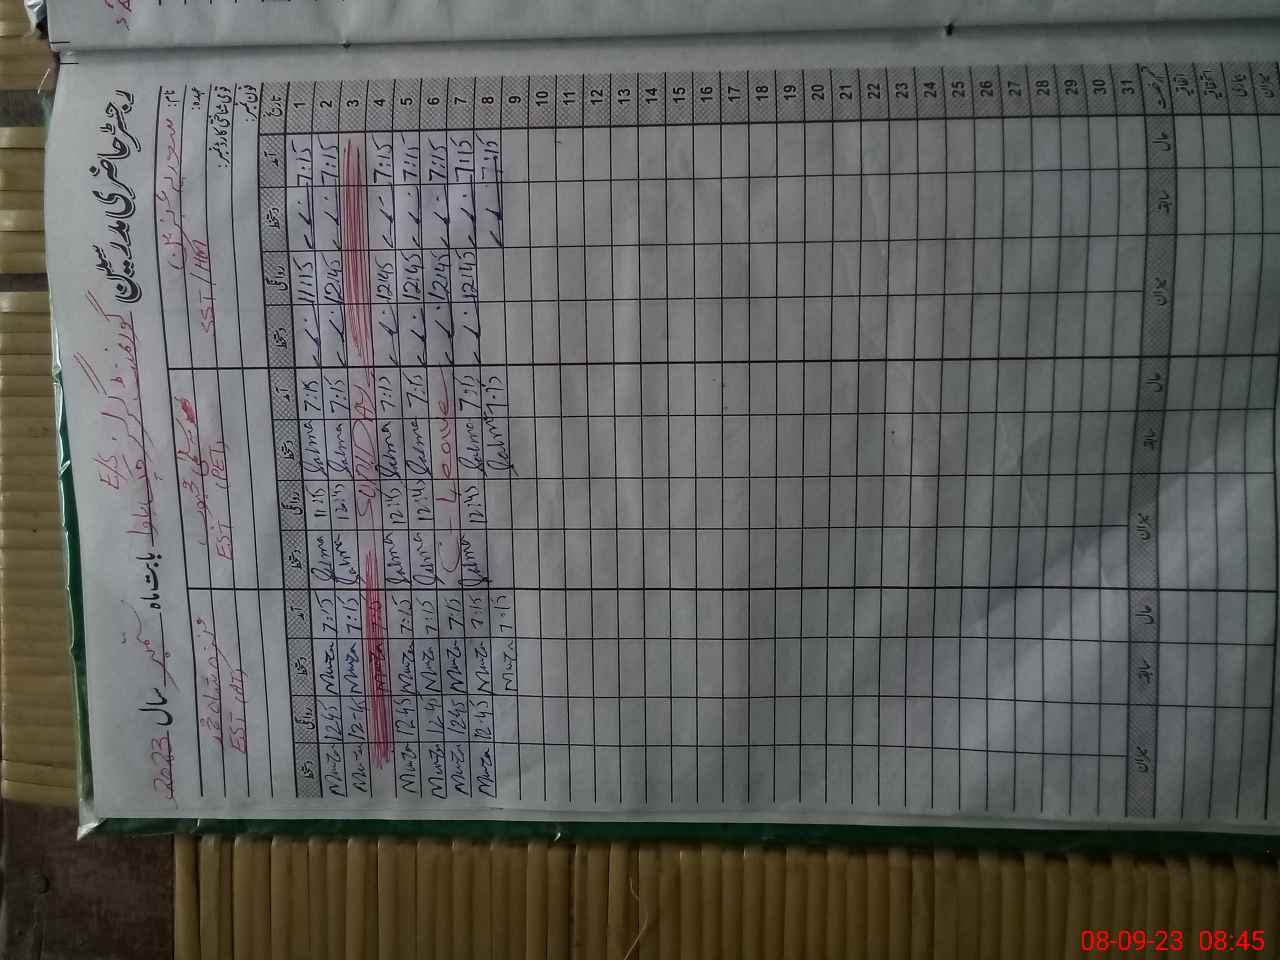 رجسٹر حاضری مدرسین گورنمنٹ گرلز E/S بابت ماہ ستمبر سال 2023
نام:
عہدہ: SST/HM EST (PET) EST (AT)
قومی شناختی کارڈ نمبر:
فون نمبر:
تاریخ آمد دستخط روانگی دستخط آمد دستخط روانگی دستخط آمد دستخط روانگی دستخط
1 7:15 11:15 7:15 Salma 11:15 Salma 7:15 Muza 12:45 Muza
2 7:15 12:45 7:15 Salma 12:45 Salma 7:15 Muza
3 SUNDAY 7:15
4 7:15 12:45 7:15 Salma 12:45 Salma 7:15 Muza 12:45 Muza
5 7:15 12:45 7:15 Salma 12:45 Salma 7:15 Muza 12:45 Muza
6 7:15 12:45 Leave 7:15 Muza 12:45 Muza
7 7:15 12:45 7:15 Salma 12:45 Salma 7:15 Muza 12:45 Muza
8 7:15 7:15 Salma 7:15 Muza
9
10
11
12
13
14
15
16
17
18
19
20
21
22
23
24
25
26
27
28
29
30
31
حال سابقہ میزان حال سابقہ میزان حال سابقہ میزان
اتفاقیہ
استحقاقیہ
بیماری
میزان
08-09-23 08:45